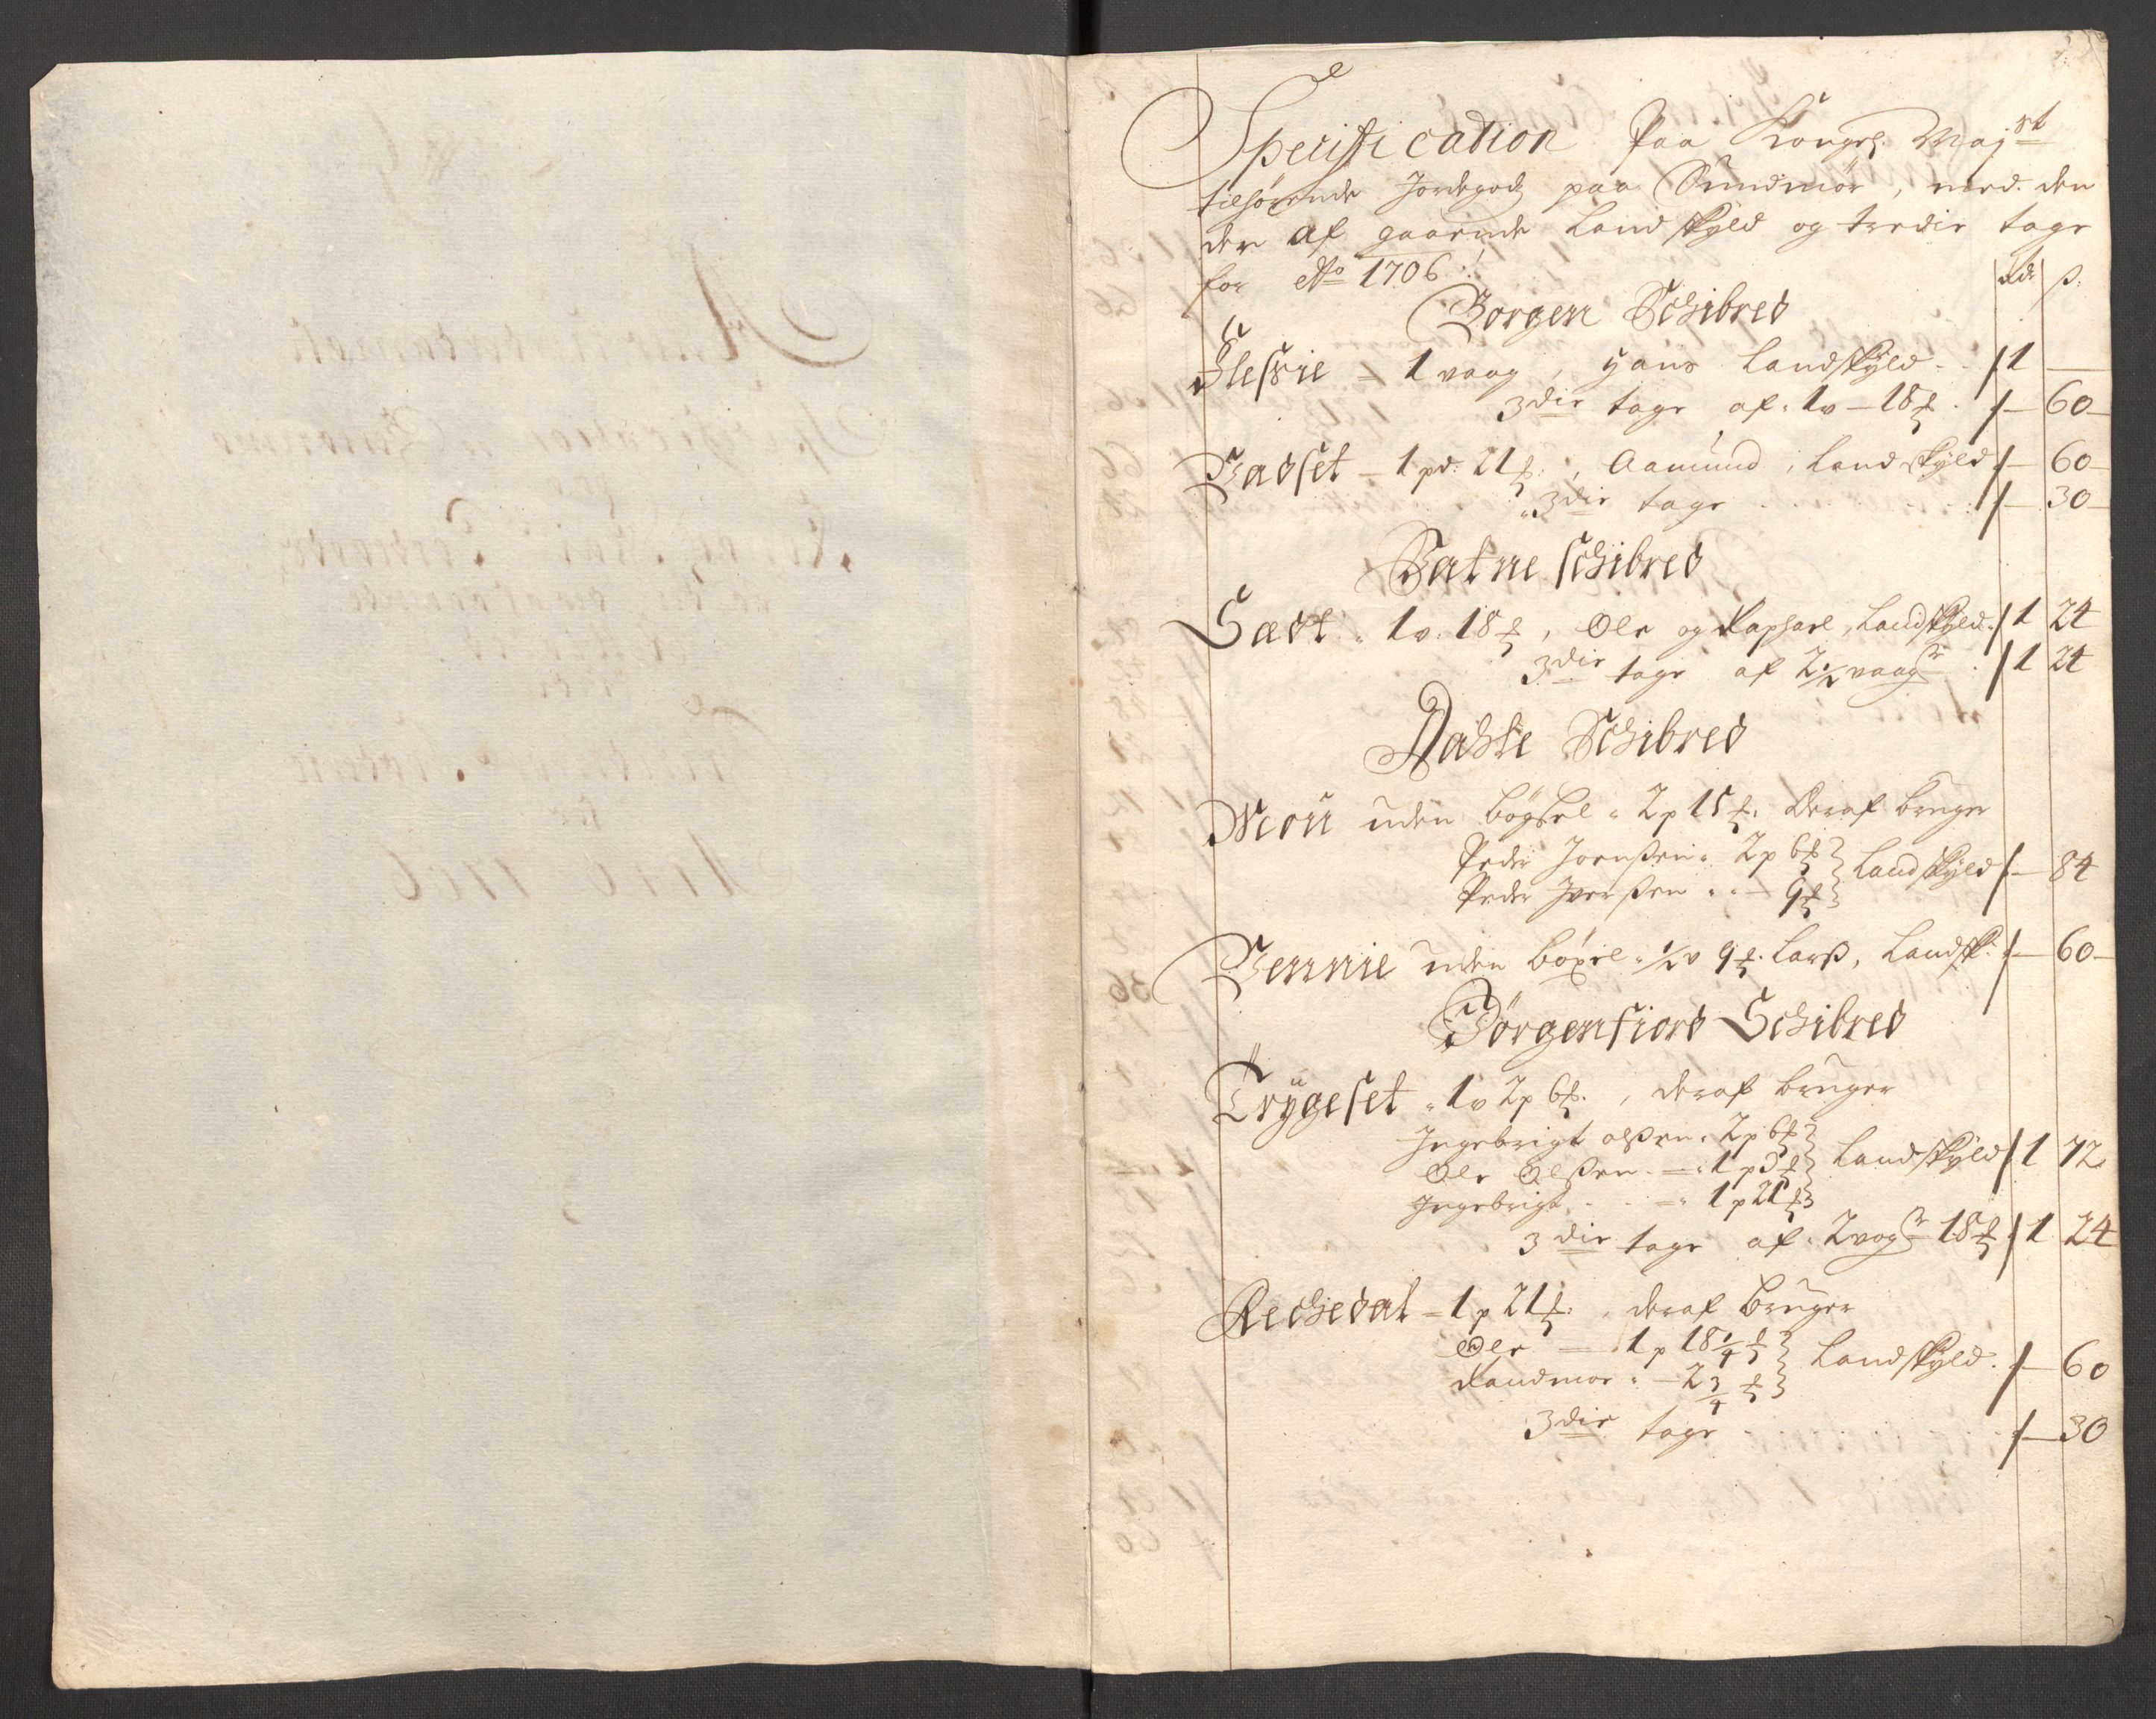 Specification Paa Kongel. Mayst
tilhörende Jordegodz paa Sundmör, med den
der af gaaende Landskyld og tredie tage
for Ao 1706
rdr ß.
Borgen Schibred
Flessie - 1 vaag, Hans Landskyld - 1 -
3die tage af 1 v - 18 - 60 -
Badset - 1 pd. 21, Aamund, Landskyld - 60 -
3die tage - 30 -
Batne schibred
Sædt 1 v. 18, Ole og Raphael, Landskyld 1 24
3die tage af 2 1/2 vaag 1 24
Dahle Schibred
uden böxsel 2 p 15. Deraf bruger
Peder Joensen 2 p 6
Peder Iversen - 9 Landskyld - 84
Bennie uden böxel 1/2 v 9. Larß, Landsk. - 60 -
Jörgenfiord Schibred
Trÿgeset 1 v 2 p 6, deraf bruger
Ingebrigt olsen 2 p 6
Ole Olsen - 1 p 3 Landskyld 1 72
Ingebrigt - 1 p 21
3die tage af 2 vog 18 1 24
Rechedal - 1 p 21, deraf bruger
Ole - 1 p 18 1/4
Randmor - 2 3/4 Landskyld - 60
3die tage - 30